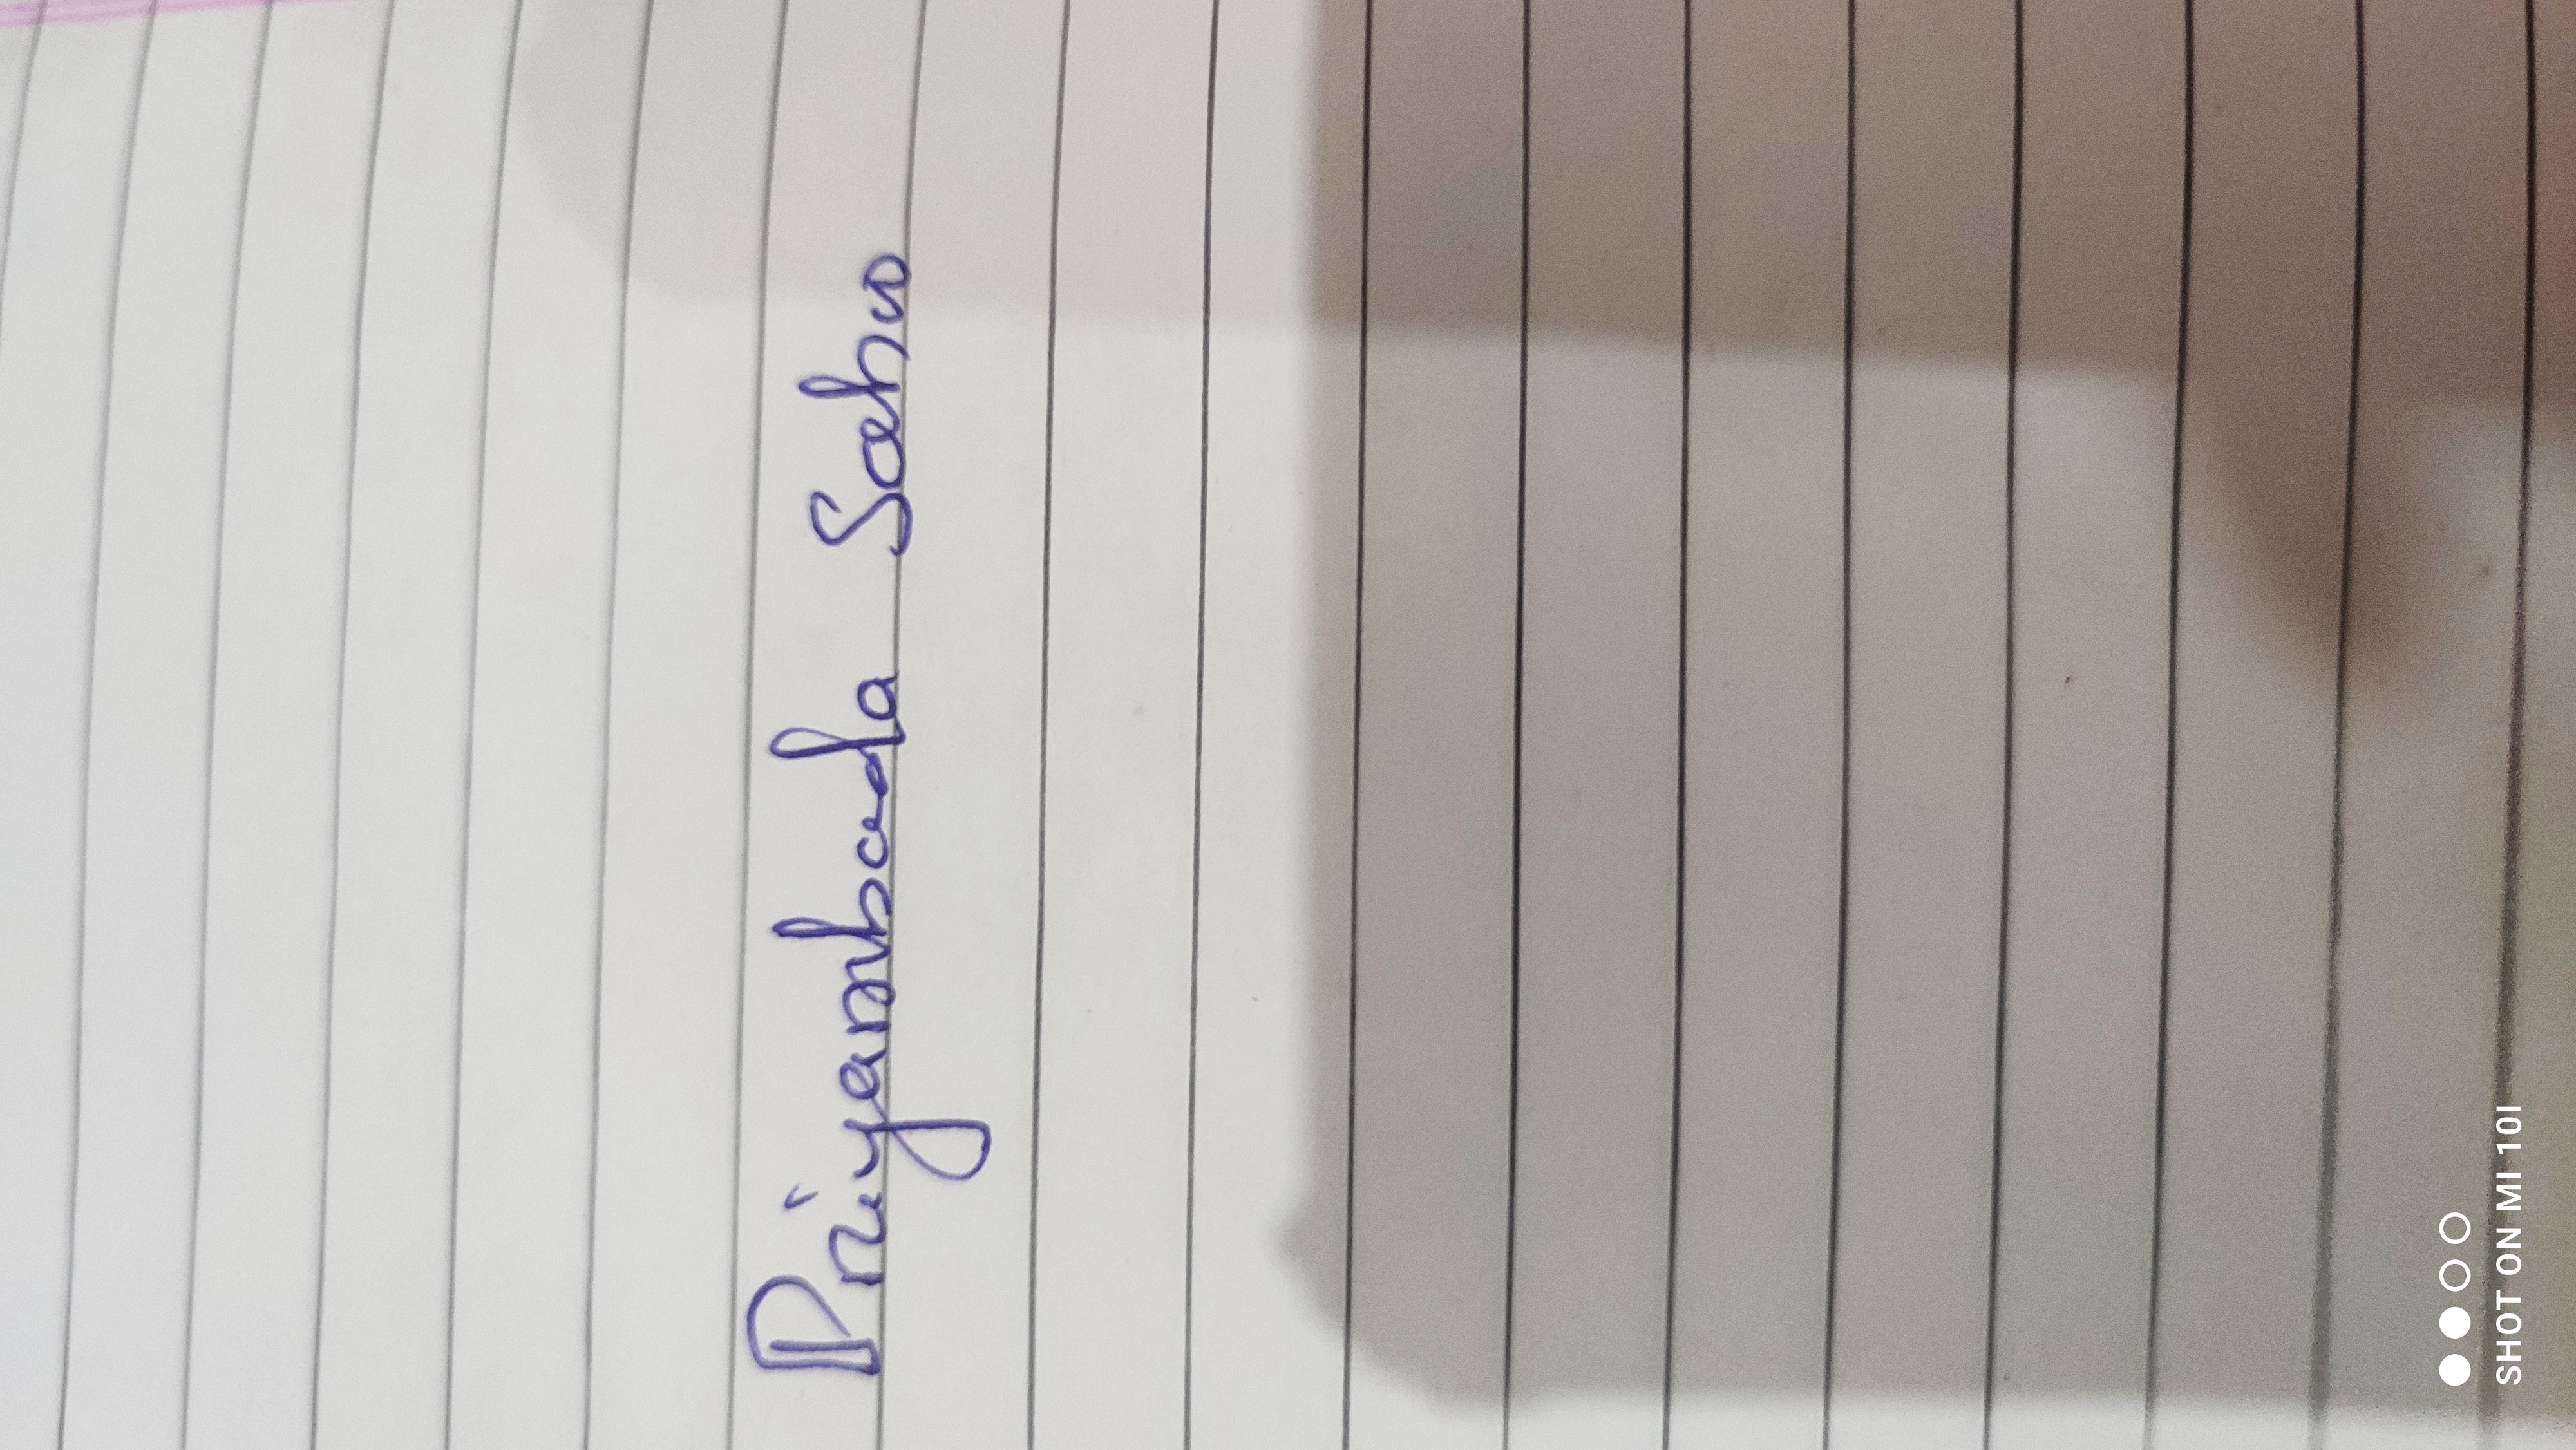 Priyambada Sahu
SHOT ON MI 10I